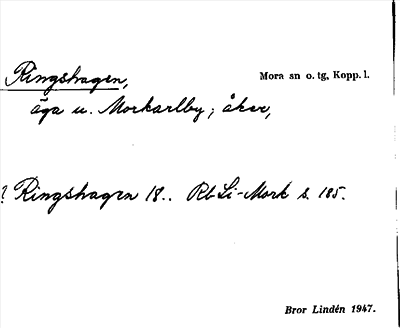 Ringshagen,
Mora sn o. tg, Kopp. l.
äga u. Morkarlby; åker,
? Ringshagen 18.. Rb Li-Mork s. 185.
Bror Lindén 1947.